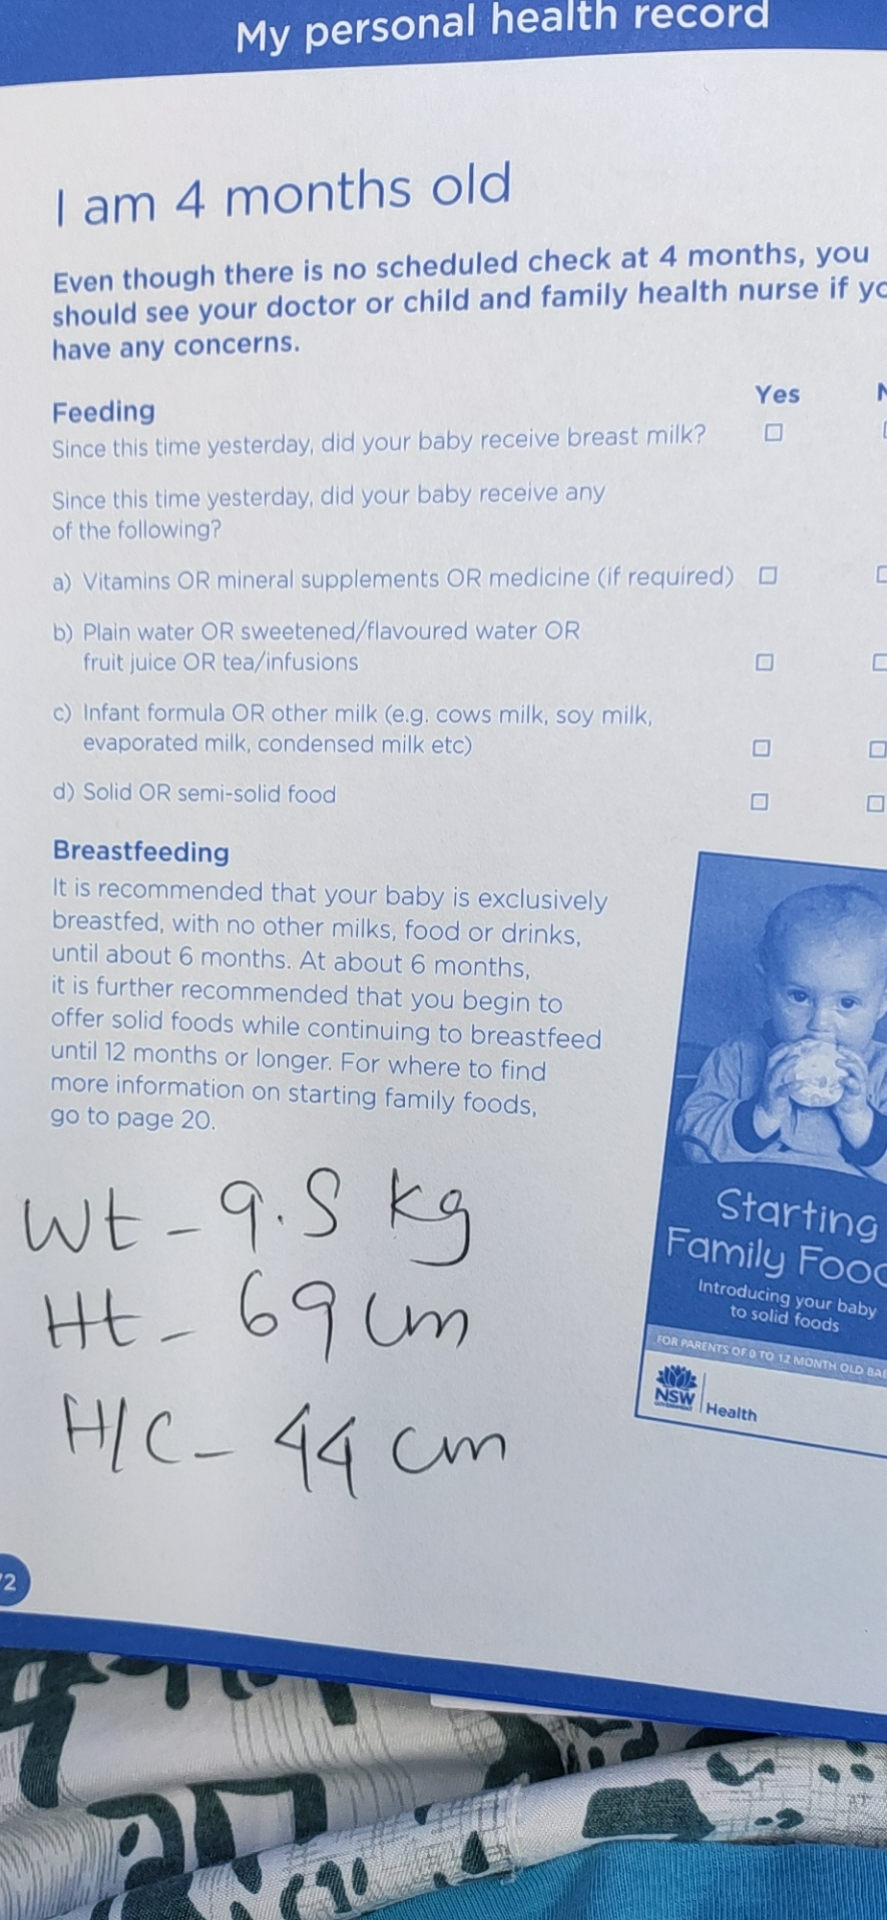 My personal health record
I am 4 months old
Even though there is no scheduled check at 4 months, you
should see your doctor or child and family health nurse if yo
have any concerns.
Yes
Feeding
Since this time yesterday, did your baby receive breast milk?
Since this time yesterday, did your baby receive any
of the following?
a) Vitamins OR mineral supplements OR medicine (if required)
b) Plain water OR sweetened/flavoured water OR
fruit juice OR tea/infusions
c) Infant formula OR other milk (e.g. cows milk, soy milk,
evaporated milk, condensed milk etc)
d) Solid OR semi-solid food
Breastfeeding
It is recommended that your baby is exclusively
breastfed, with no other milks, food or drinks,
until about 6 months. At about 6 months,
it is further recommended that you begin to
offer solid foods while continuing to breastfeed
until 12 months or longer. For where to find
more information on starting family foods,
go to page 20.
Starting
Family Foo
Introducing your baby
to solid foods
FOR PARENTS OF 0 TO 12 MONTH OLD BA
NSW
GOVERNMENT
Health
Wt - 9.5 kg
Ht - 69 cm
H/C - 44 cm